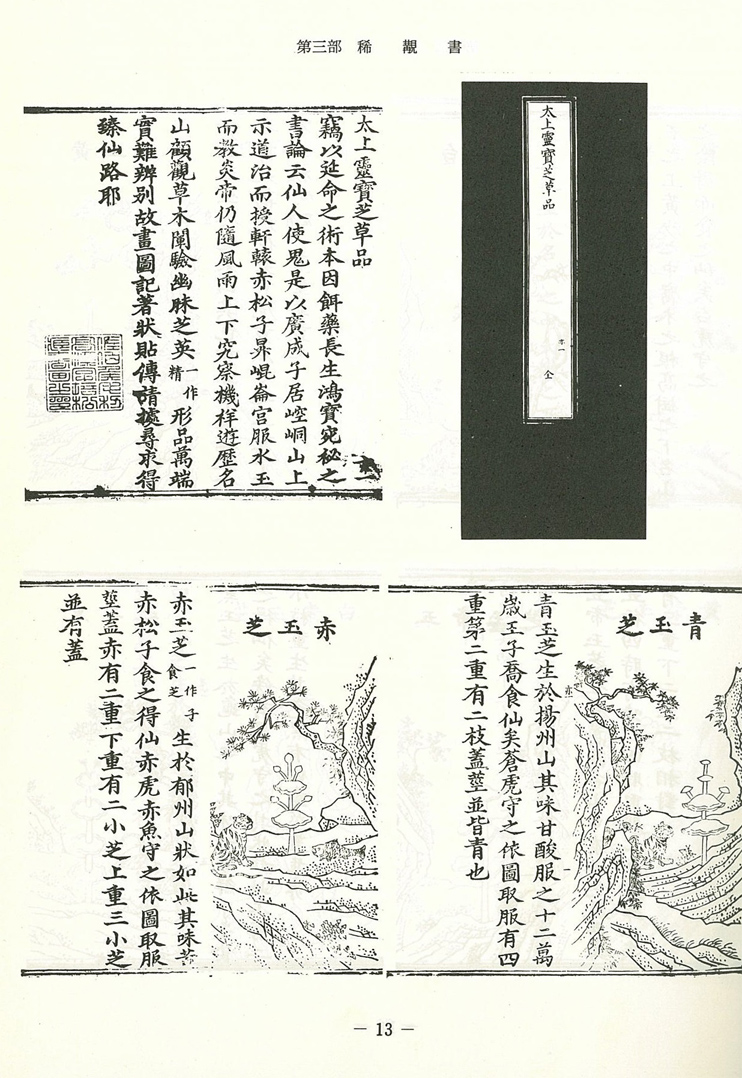 第三部 稀 覯 書
太上靈寶芝草品
全
太上靈寶芝草品
竊以延命之術本因餌藥長生鴻寶究秘之
書論云仙人使鬼是以廣成子居崆峒山上
示道治而授軒轅赤松子昇崐崙宮服水玉
而教炎帝仍隨風雨上下究察機样遊歷名
山顧觀草木闡驗幽昧芝英一作精形品萬端
實難辨別故畫圖記著狀貼傳請據尋求得
臻仙路耶
青玉芝
青玉芝生於揚州山其味甘酸服之十二萬
歲王子喬食仙矣蒼虎守之依圖取服有四
重第二重有二枝蓋莖並皆青也
赤玉芝
赤玉芝一作子食芝生於郁州山狀如此其味苦
赤松子食之得仙赤虎赤魚守之依圖取服
莖蓋赤有二重下重有二小芝上重三小芝
並有蓋
— 13 —